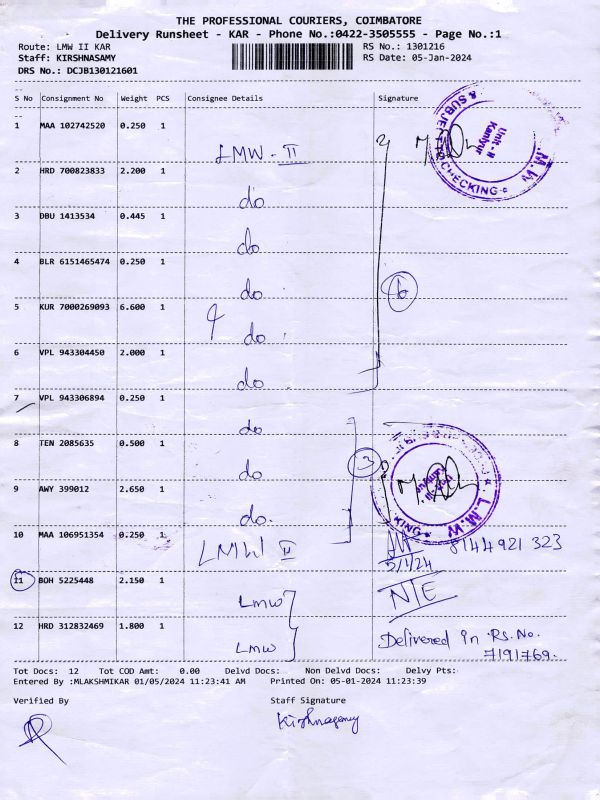 THE PROFESSIONAL COURIERS, COIMBATORE
Delivery Runsheet - KAR - Phone No.:0422-3505555 - Page No.:1
Route: LMW II KAR RS No.: 1301216
Staff: KIRSHNASAMY RS Date: 05-Jan-2024
DRS No.: DCJB130121601
S No Consignment No Weight PCS Consignee Details Signature
1 MAA 102742520 0.250 1 LMW - II
2 HRD 700823833 2.200 1 do
3 DBU 1413534 0.445 1 do
4 BLR 6151465474 0.250 1 do 6
5 KUR 7000269093 6.600 1 do
6 VPL 943304450 2.000 1 do
7 VPL 943306894 0.250 1 do
8 TEN 2085635 0.500 1 do 3
9 AWY 399012 2.650 1 do
10 MAA 106951354 0.250 1 LMW II 8144921323
5/1/24
11 BOH 5225448 2.150 1 LMW N/E
12 HRD 312832469 1.800 1 LMW Delivered in Rs. No.
7191769.
& SUBJE
Unit - II
Kaniyur
CHECKING
L.M.W
KING
L.M.W
Tot Docs: 12 Tot COD Amt: 0.00 Delvd Docs: Non Delvd Docs: Delvy Pts:
Entered By :MLAKSHMIKAR 01/05/2024 11:23:41 AM Printed On: 05-01-2024 11:23:39
Verified By Staff Signature
Kirshnasamy